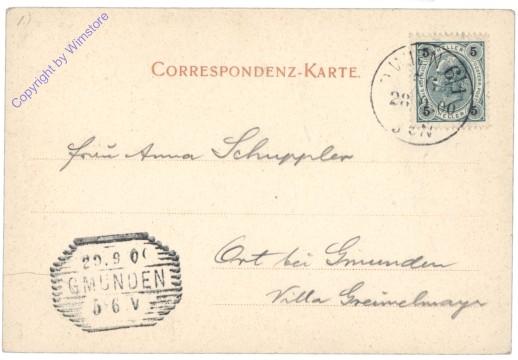 1)
Copyright by Wimstore
CORRESPONDENZ-KARTE.
5 5
5 5
28 00
Frau Anna Schuppler
29.9 00
GMUNDEN
5-6 V
Ort bei Gmunden
Villa Greimelmayr